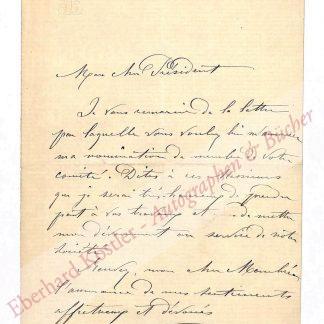 Mon cher Président
Je vous remercie de la lettre
par laquelle vous voulez bien
ma nomination de membre de votre
comité. Dites à ces Messieurs
que je serai très heureux de prendre
part à vos travaux et de mettre
mon dévouement au service de notre
Société.
mon cher
l'assurance de mes sentiments
affectueux et dévoués
Eberhard Köstler - Autographen & Bücher